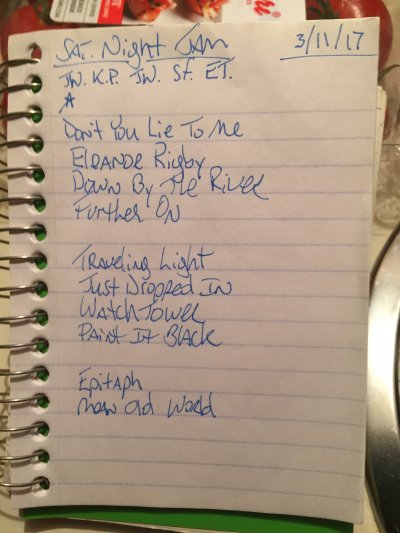 Sat. Night Jam 3/11/17
JW. K.P. JW. St. ET.
Don't You Lie To Me
Eleanor Rigby
Down By The River
Further On
Traveling Light
Just Dropped In
WatchTower
Paint It Black
Epitaph
Mean Old World